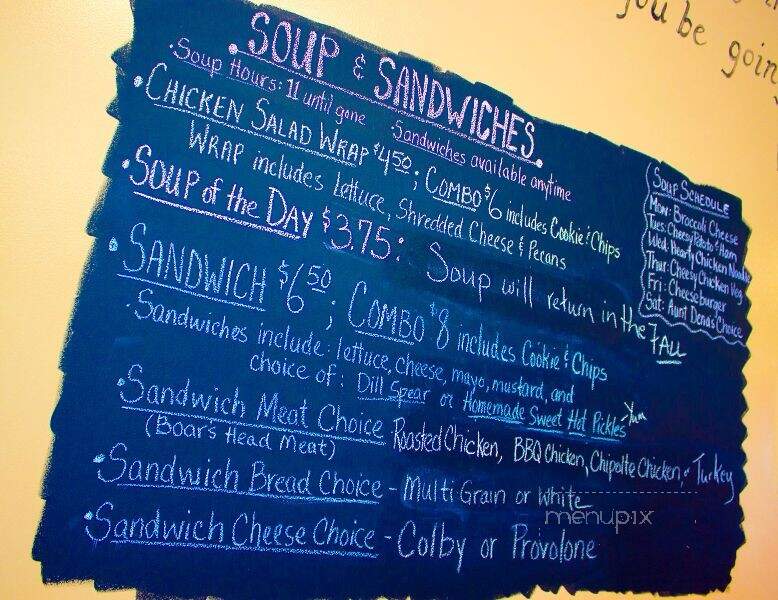 you be goin
SOUP & SANDWICHES
• Soup Hours: 11 until gone Sandwiches available anytime
• CHICKEN SALAD WRAP $4.50; COMBO $6 includes Cookie & Chips
WRAP includes Lettuce, Shredded Cheese & Pecans
• SOUP of the DAY $3.75: Soup will return in the FALL
• SANDWICH $6.50; COMBO $8 includes Cookie & Chips
• Sandwiches include: lettuce, cheese, mayo, mustard, and
choice of: Dill Spear or Homemade Sweet Hot Pickles Yum
• Sandwich Meat Choice Roasted Chicken, BBQ Chicken, Chipolte Chicken, or Turkey
(Boar's Head Meat)
• Sandwich Bread Choice - Multi Grain or White
• Sandwich Cheese Choice - Colby or Provolone
SOUP SCHEDULE
Mon: Broccoli Cheese
Tues: Cheesy Potato & Ham
Wed: Hearty Chicken Noodle
Thur: Cheesy Chicken Veg
Fri: Cheeseburger
Sat: Aunt Dena's Choice
menupix